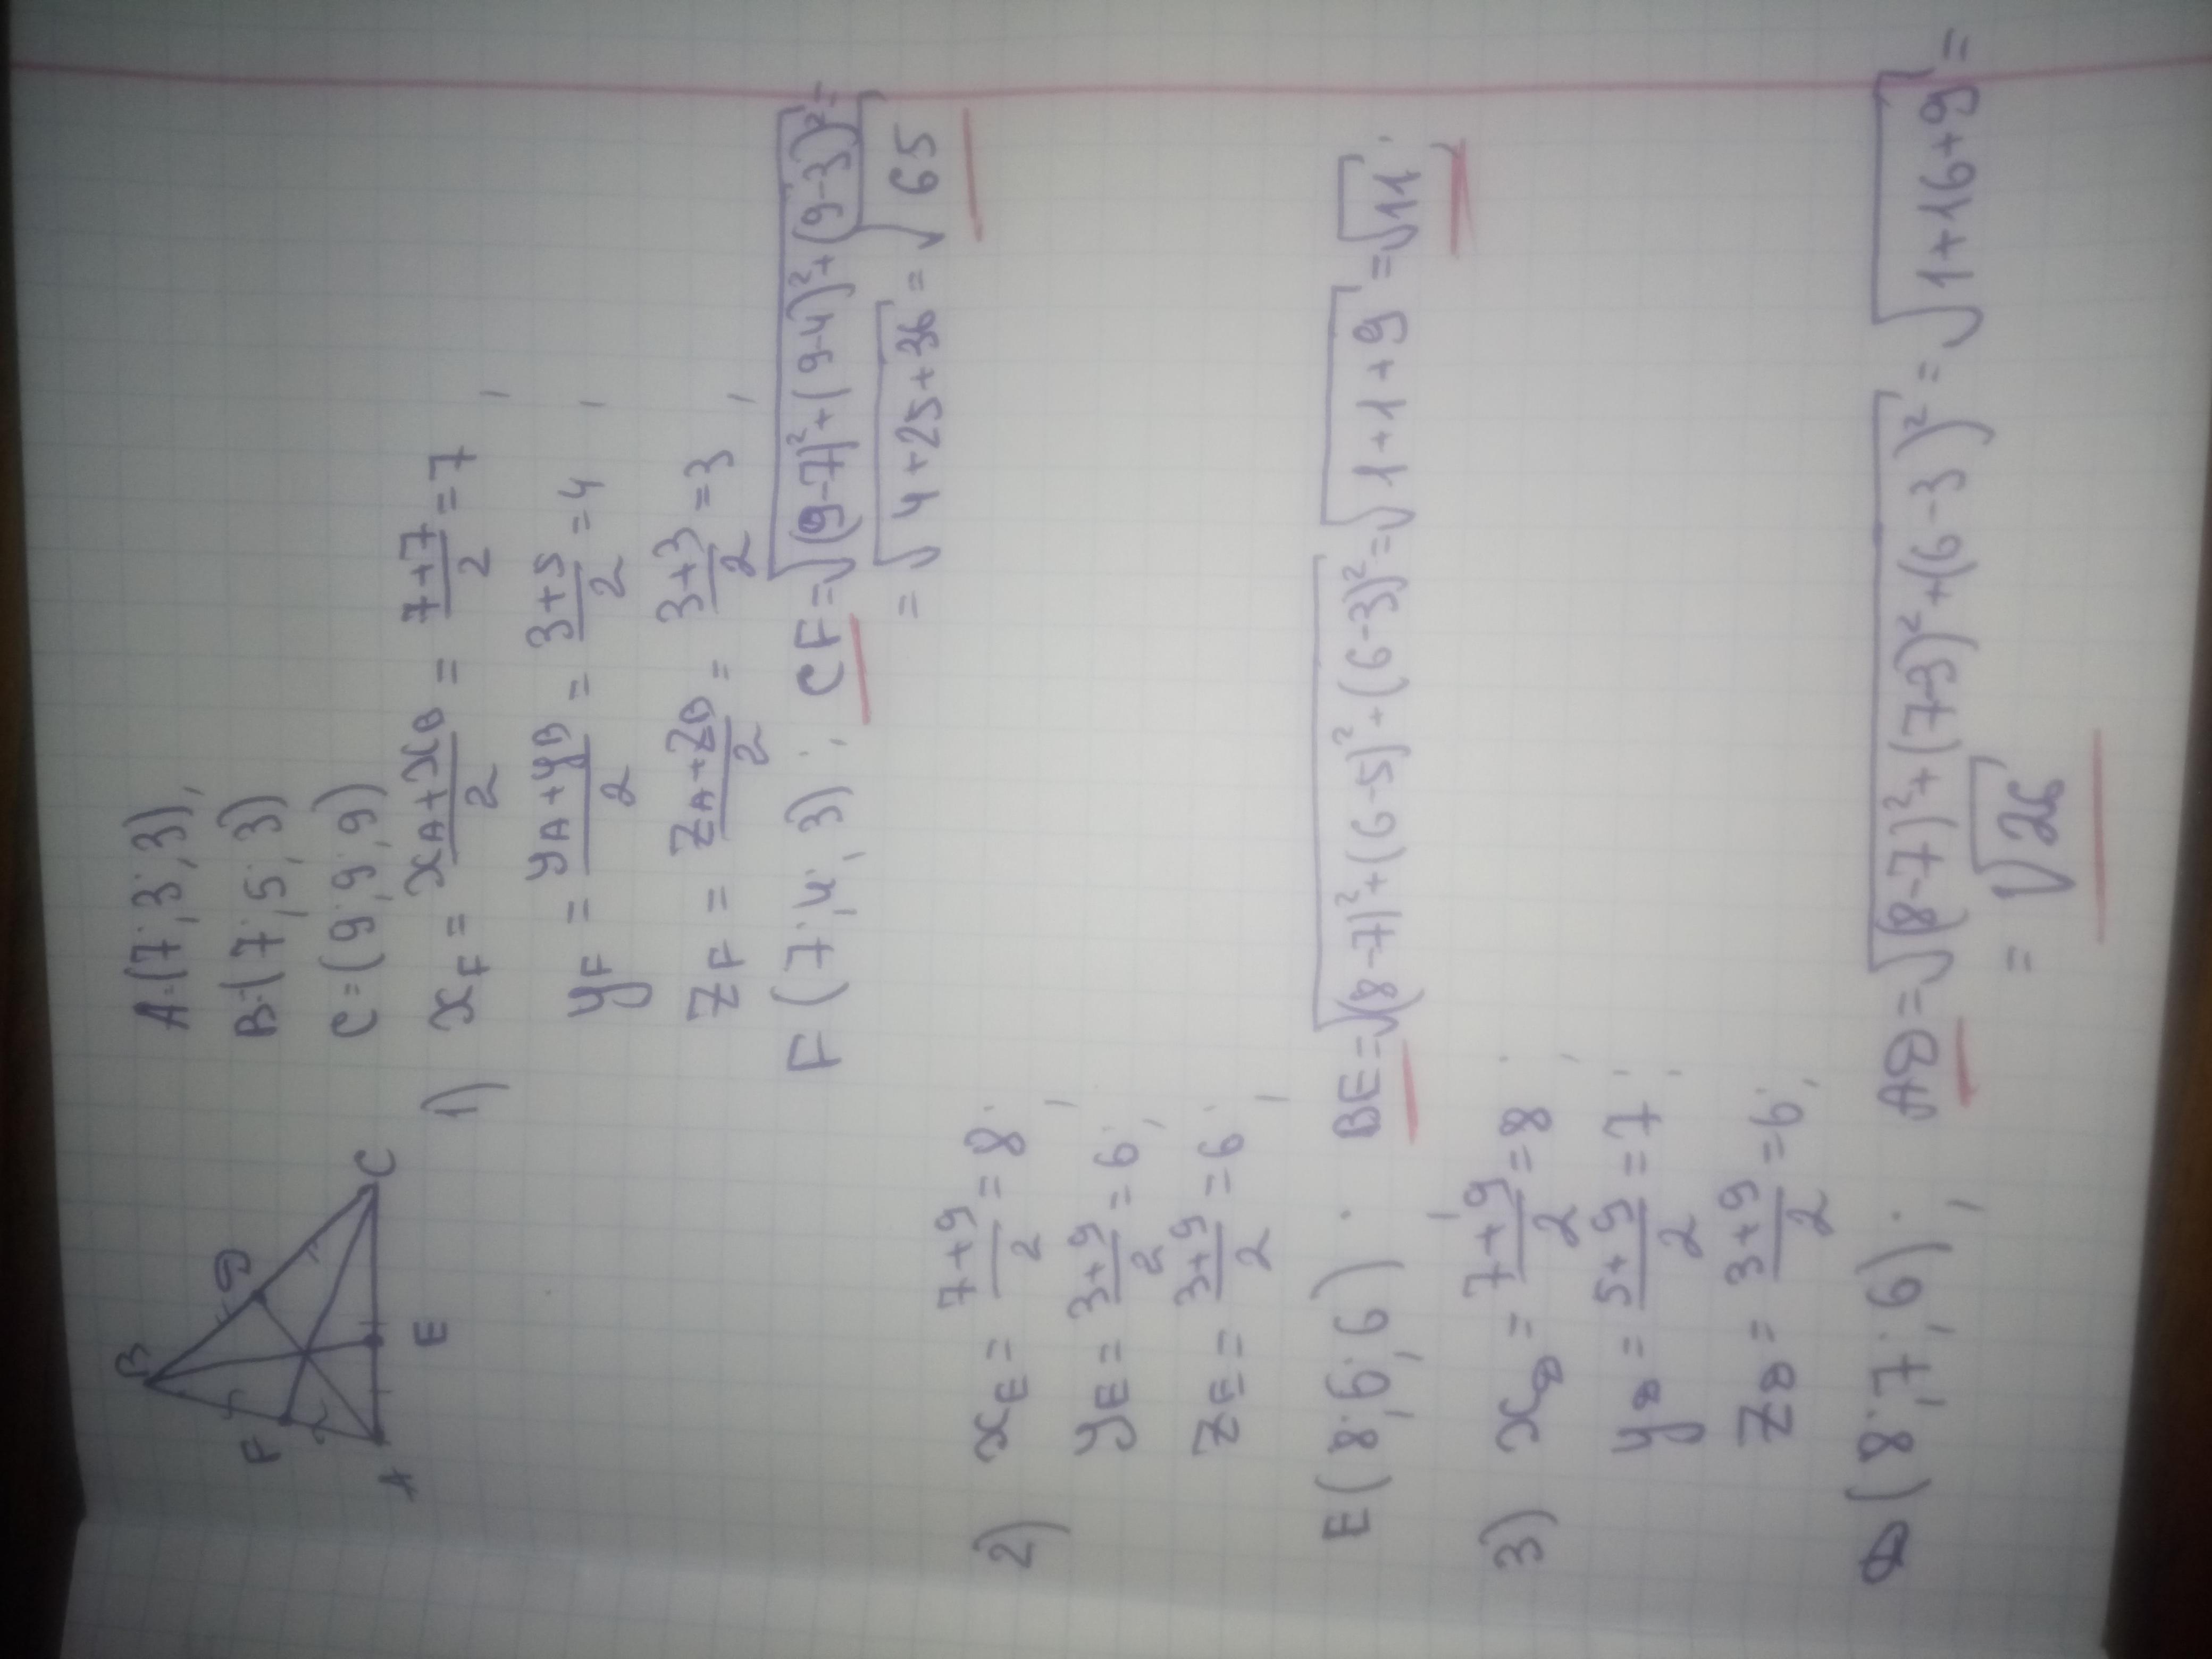 B
F
D
A
E
C
A=(7;3;3),
B=(7;5;3)
C=(9;9;9)
1) x_F = (x_A+x_B)/2 = (7+7)/2 = 7;
y_F = (y_A+y_B)/2 = (3+5)/2 = 4;
z_F = (z_A+z_B)/2 = (3+3)/2 = 3;
F(7;4;3); CF=√((9-7)²+(9-4)²+(9-3)²)=
=√(4+25+36)=√65
2) x_E = (7+9)/2 = 8;
y_E = (3+9)/2 = 6;
z_E = (3+9)/2 = 6;
E(8;6;6); BE=√((8-7)²+(6-5)²+(6-3)²)=√(1+1+9)=√11;
3) x_D = (7+9)/2 = 8;
y_D = (5+9)/2 = 7;
z_D = (3+9)/2 = 6;
D(8;7;6); AD=√((8-7)²+(7-3)²+(6-3)²)=√(1+16+9)=
=√26